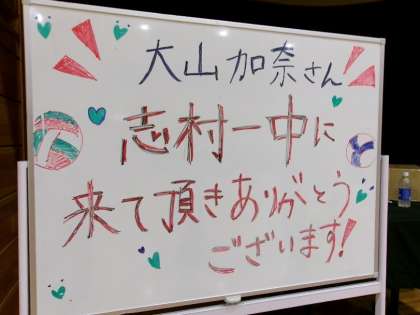 大山加奈さん
志村一中に
来て頂きありがとう
ございます!